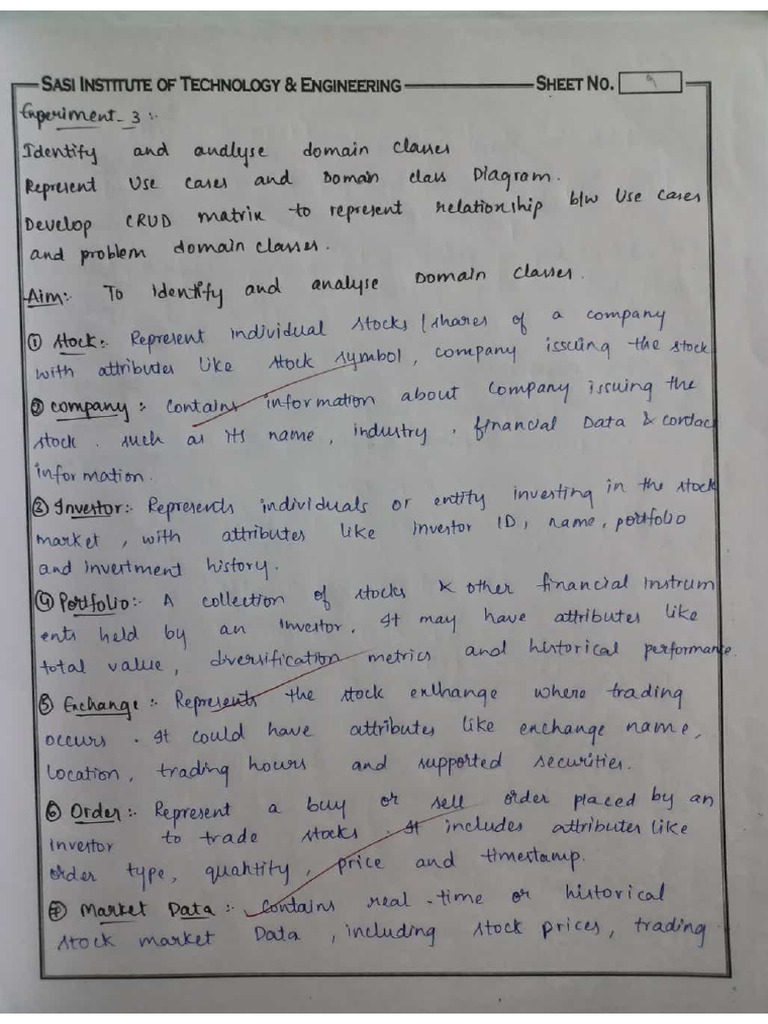 SASI INSTITUTE OF TECHNOLOGY & ENGINEERING SHEET NO. 9
Experiment-3 :-
Identify and analyse domain classes
Represent Use cases and Domain class Diagram.
Develop CRUD matrix to represent relationship b/w Use cases
and problem domain classes.
Aim:- To identify and analyse Domain classes.
① Stock:- Represent individual stocks/shares of a company
with attributes like stock symbol, company issuing the stock
② Company:- Contains information about company issuing the
stock. such as its name, industry, financial Data & contact
information.
③ Investor:- Represents individuals or entity investing in the stock
market, with attributes like investor ID, name, portfolio
and investment history.
④ Portfolio:- A collection of stocks & other financial instrum
ents held by an investor. It may have attributes like
total value, diversification metrics and historical performance.
⑤ Exchange:- Represents the stock exchange where trading
occurs. It could have attributes like exchange name,
location, trading hours and supported securities.
⑥ Order:- Represent a buy or sell order placed by an
investor to trade stocks. It includes attributes like
order type, quantity, price and timestamp.
⑦ Market Data:- Contains real-time or historical
stock market Data, including stock prices, trading